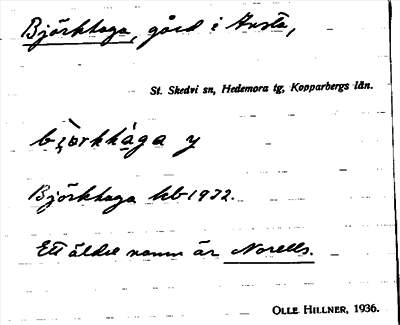 Björkhaga, gård i Arsta,
St. Skedvi sn, Hedemora tg, Kopparbergs län.
Björkhaga kb 1932.
Ett äldre namn är Norells.
OLLE HILLNER, 1936.